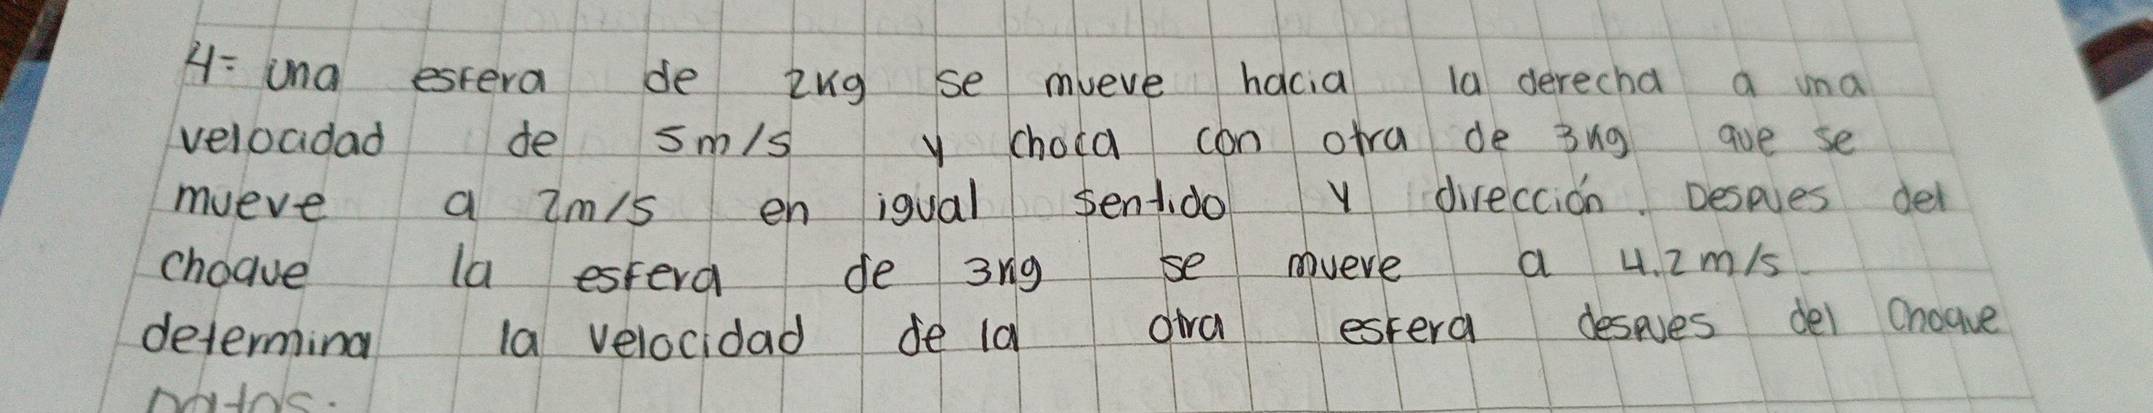 4= una esfera de 2kg se mueve hacia la derecha a una
velocidad de 5m/s y choca con otra de 3kg que se
mueve a 2m/s en igual sentido y dirección. Despues del
choque la esfera de 3kg se mueve a 4.2m/s
determina la velocidad de la otra esfera despues del choque
Datos: